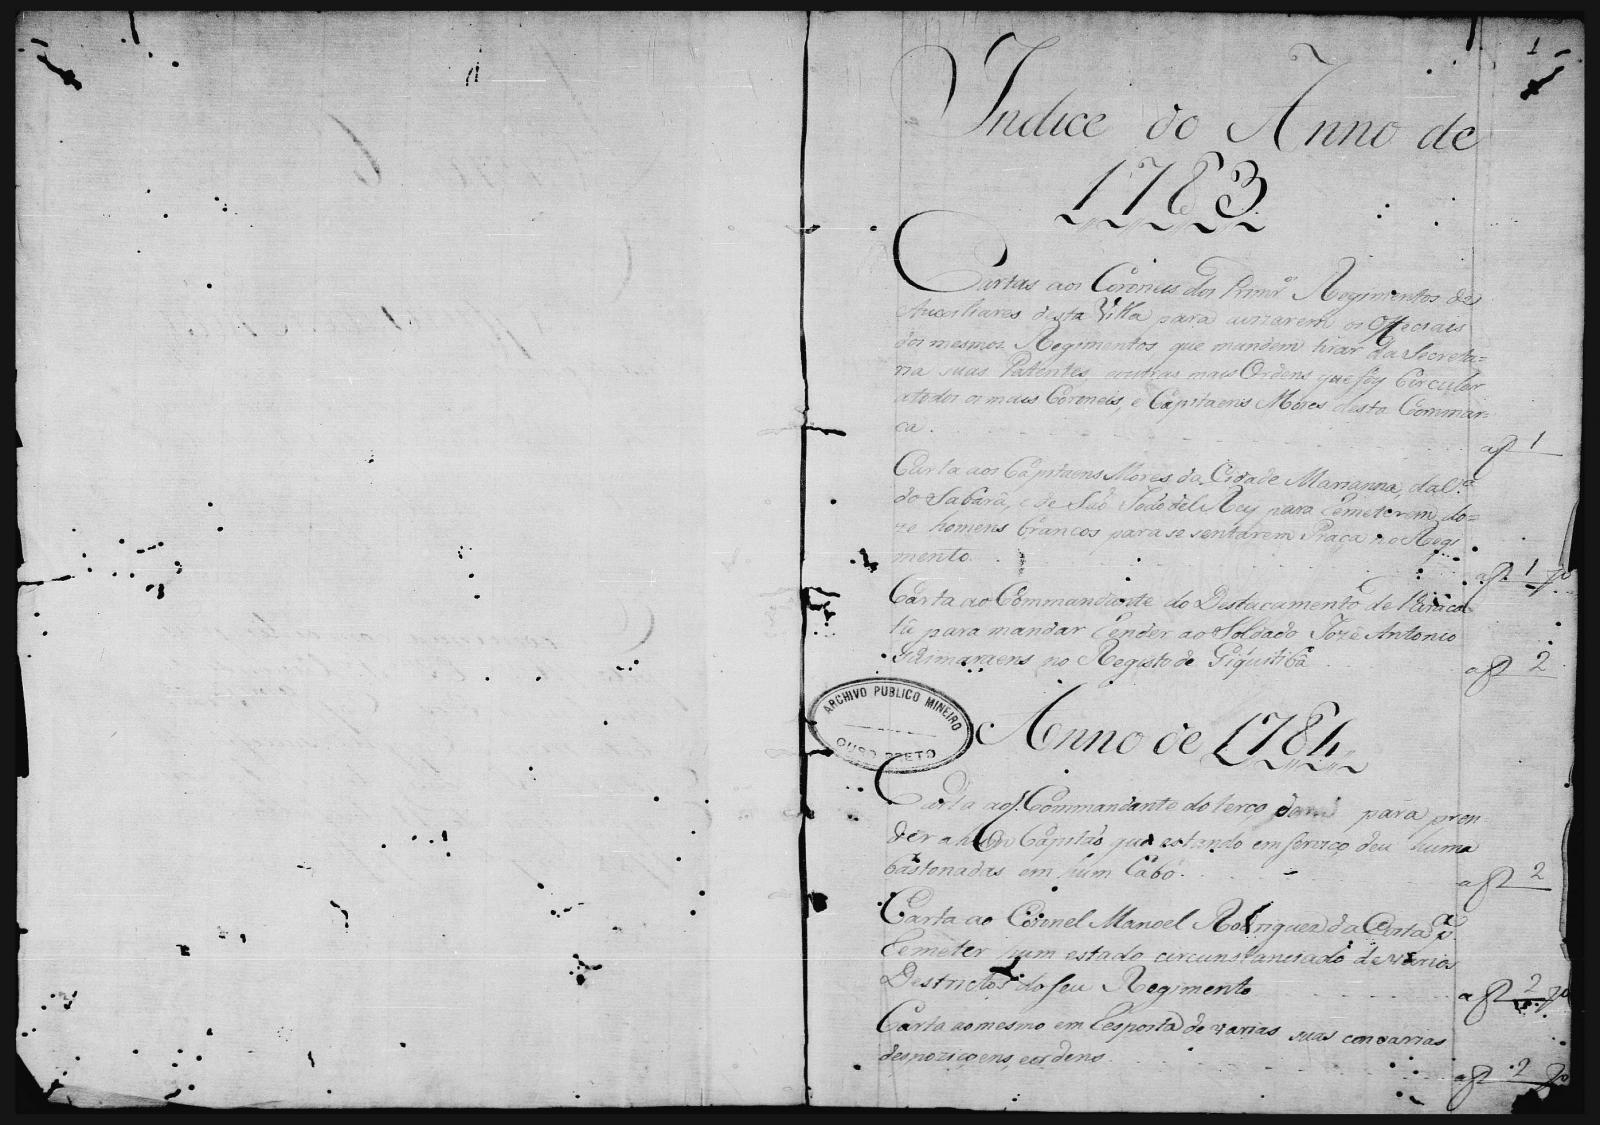 1
Indice do Anno de
1783
Cartas aos Coroneis dos Primr.os Regimentos de
Auxiliares desta Villa para avizarem os Officiais
dos mesmos Regimentos que mandem tirar da Secreta=
ria suas Patentes, e outras mais Ordens que foy Circular
a todos os mais Coroneis, e Capitaens Mores desta Commar=
ca.
a f 1
Carta aos Capitaens Mores da Cidade Marianna, da V.a
do Sabará, e de São João del Rey para Remeterem do=
ze homens brancos para se sentarem Praça no Regi
mento.
a f. 1
Carta ao Commandante do Destacamento de Paraca=
tú para mandar Render ao Soldado Jozé Antonio
Guimaraens no Registo de Giquitibá
a f 2
ARCHIVO PUBLICO MINEIRO
OURO PRETO
Anno de 1784
Carta ao Commandante do terço para pren=
der a hum Capitão que estando em serviço, deu huma
bastonadas em hum Cabo.
a f 2
Carta ao Coronel Manoel Rodrigues da Costa p.a
Remeter hum estado circunstanciado de varios
Districtos do seu Regimento
a f 2
Carta ao mesmo em Resposta de varias suas com varias
despoziçoens, e ordens.
a f 2